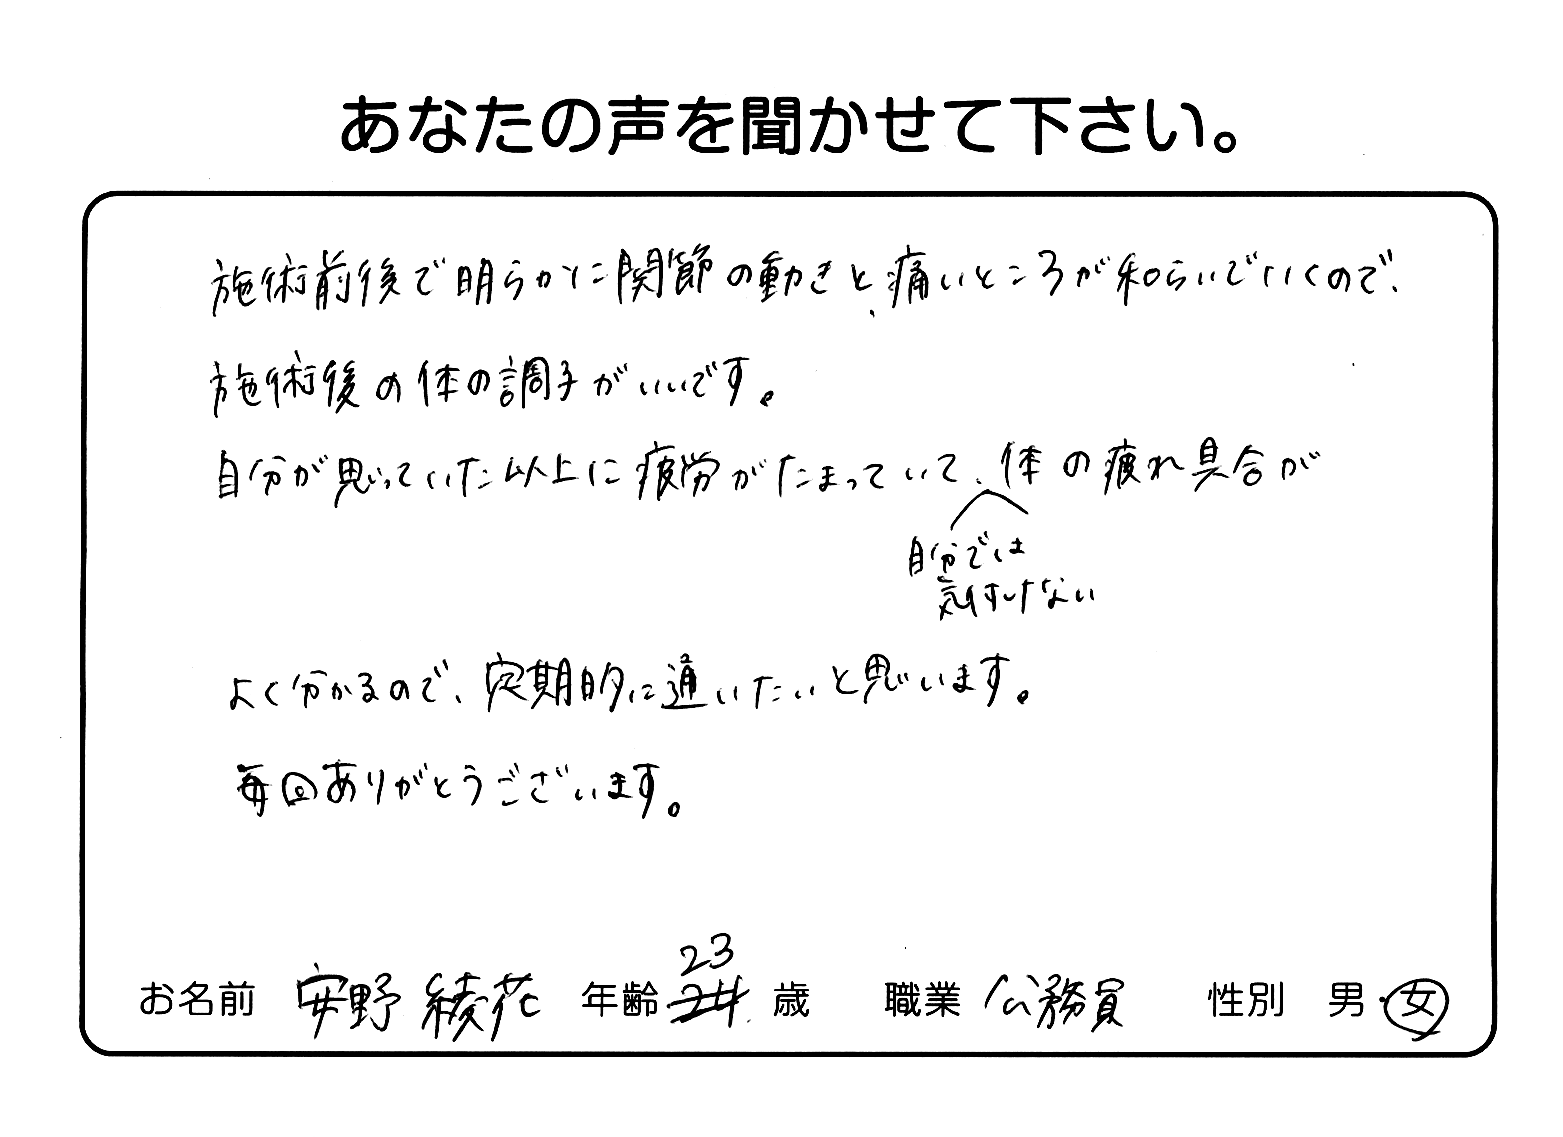 あなたの声を聞かせて下さい。
施術前後で明らかに関節の動きと、痛いところが和らいでいくので、
施術後の体の調子がいいです。
自分が思っていた以上に疲労がたまっていて、体の疲れ具合が
自分では
気付けない
よく分かるので、定期的に通いたいと思います。
毎回ありがとうございます。
23
お名前 安野 綾花 年齢 24 歳 職業 公務員 性別 男・女